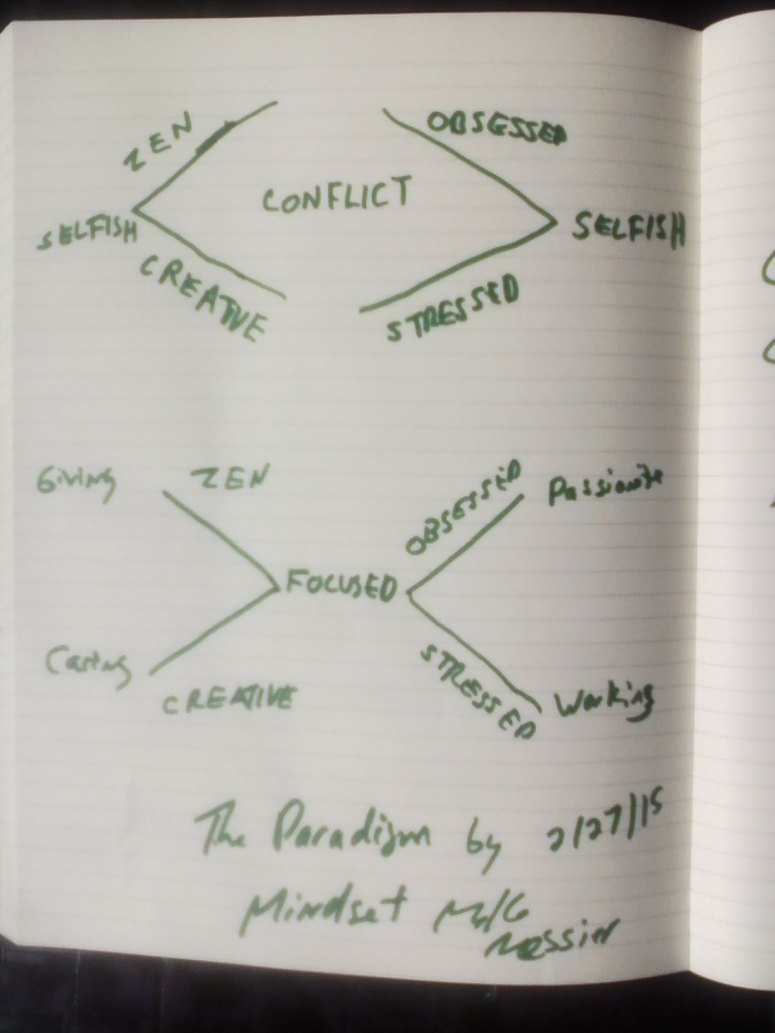 ZEN OBSESSED
CONFLICT
SELFISH SELFISH
CREATIVE STRESSED
Giving ZEN OBSESSED Passionate
FOCUSED
Caring CREATIVE STRESSED Working
The Paradigm by 2/27/15
Mindset